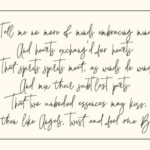 Tell me no more of minds embracing minds,
And hearts exchang'd for hearts;
That spirits spirits meet, as winds do winds,
And mix their subtlest parts;
That two unbodied essences may kiss,
then like Angels, twist and feel one B